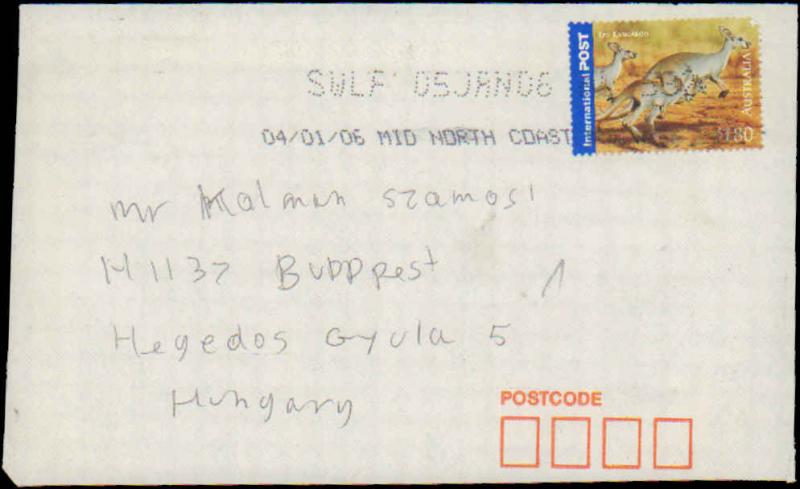 SWLF 05JAN06
04/01/06 MID NORTH COAST
International POST
AUSTRALIA
$1.80
Mr Kalman Szamosi
H 1137 Budppest
Hegedos Gyula 5
Hungary
POSTCODE